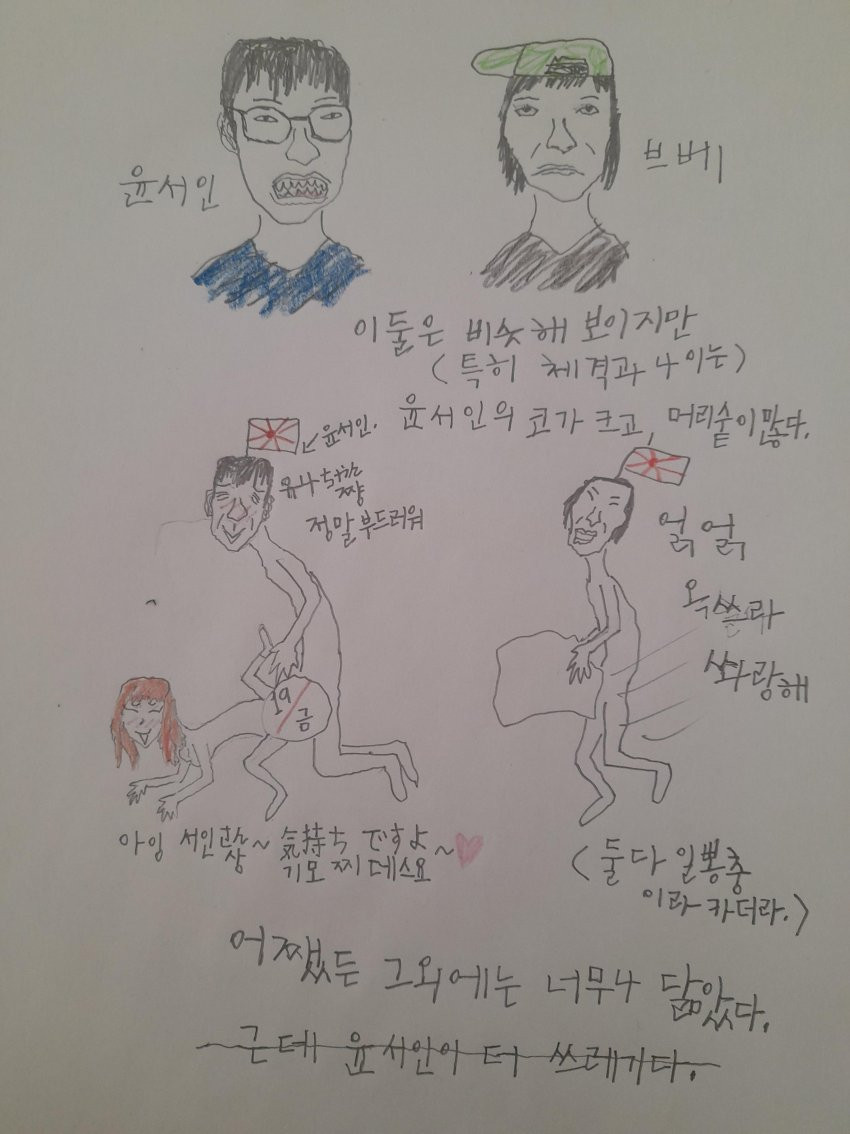 윤서인
브베
이둘은 비슷해 보이지만
(특히 체격과 나이는)
윤서인의 코가 크고, 머리숱이 많다.
윤서인.
유나 ちゃん
쨩
정말 부드러워
얽얽
쏴랑해
19
금
아잉 서인 さん~ 気持ち ですよ~
상 기모찌 데스요
(둘다 일뽕충
이라 카더라.)
어쨌든 그외에는 너무나 닮았다.
근데 윤서인이 더 쓰레기다.